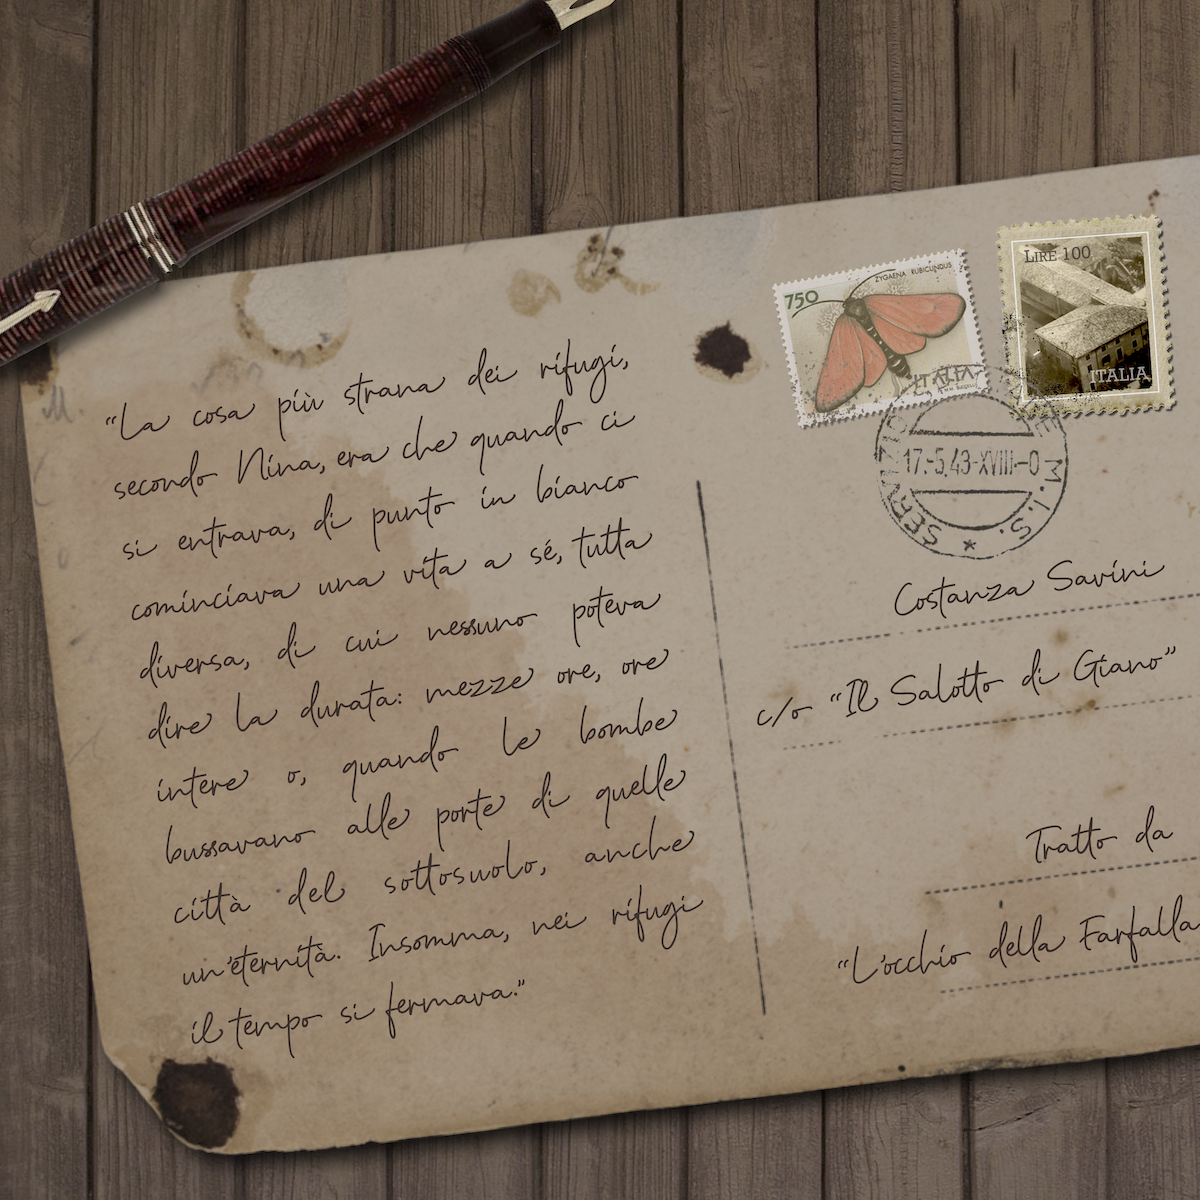 “La cosa più strana dei rifugi,
secondo Nina, era che quando ci
si entrava, di punto in bianco
cominciava una vita a sé, tutta
diversa, di cui nessuno poteva
dire la durata: mezze ore, ore
intere o, quando le bombe
bussavano alle porte di quelle
città del sottosuolo, anche
un'eternità. Insomma, nei rifugi
il tempo si fermava.”
750
ZYGAENA RUBICUNDUS
ITALIA
LIRE 100
ITALIA
17.-5.43-XVIII-0
M.I.S.
Costanza Savini
c/o “Il Salotto di Giano”
Tratto da
“L'occhio della Farfalla